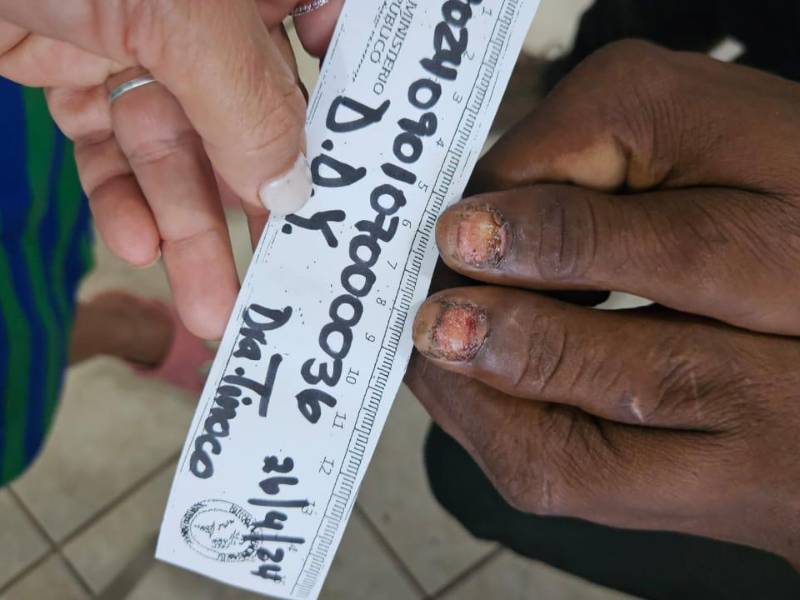 MINISTERIO
PÚBLICO
202409010700000036
D.D.Y.
Dra. Tinoco 26/4/24
1 2 3 4 5 6 7 8 9 10 11 12 13